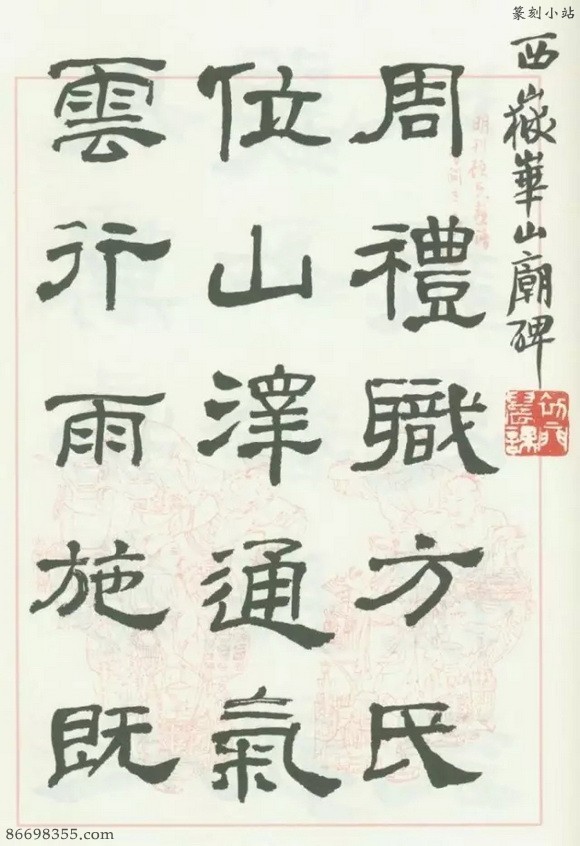 篆刻小站
西嶽華山廟碑
周禮職方氏
位山澤通氣
雲行雨施既
86698355.com